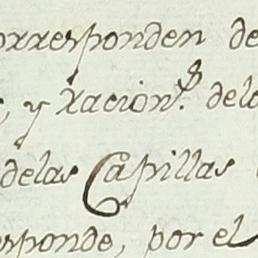 orresponden de
, y Racion.s dela
delas Capillas
esponde, por el